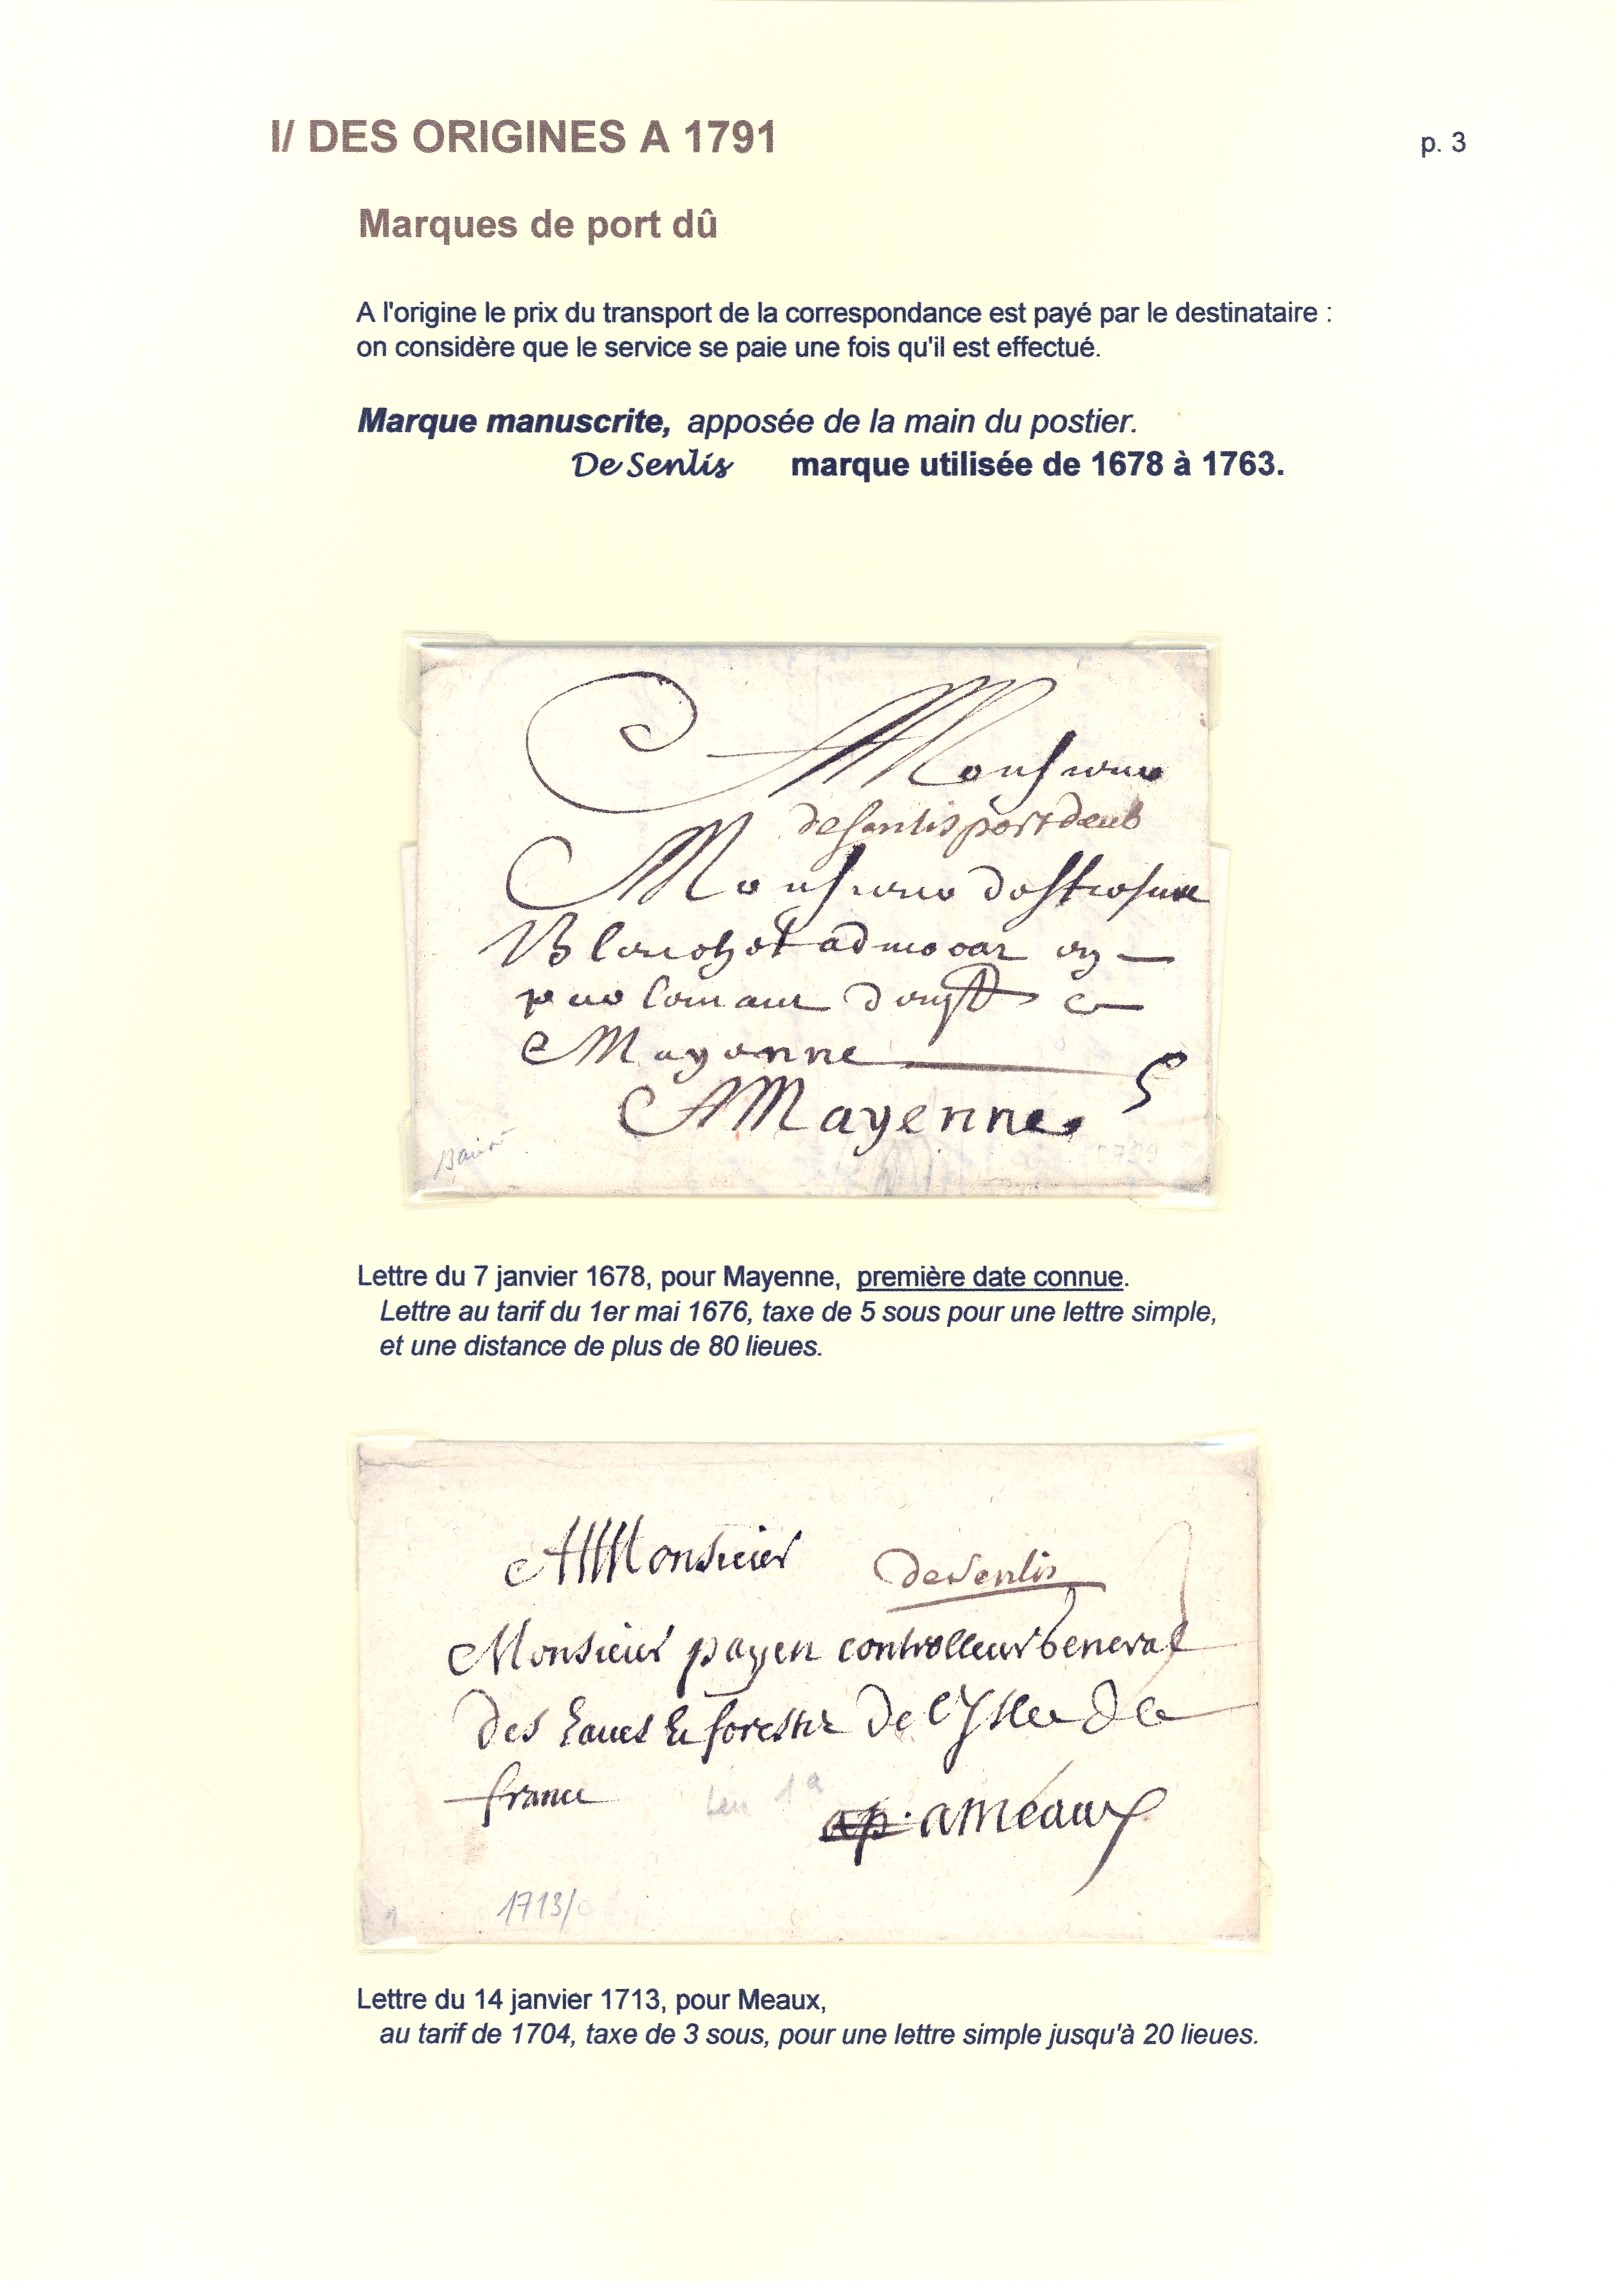 I/ DES ORIGINES A 1791
p. 3
Marques de port dû
A l'origine le prix du transport de la correspondance est payé par le destinataire :
on considère que le service se paie une fois qu'il est effectué.
Marque manuscrite, apposée de la main du postier.
De Senlis marque utilisée de 1678 à 1763.
A Monsieur
de Senlis port deub
Monsieur
Mayenne
5
A Mayenne
Lettre du 7 janvier 1678, pour Mayenne, première date connue.
Lettre au tarif du 1er mai 1676, taxe de 5 sous pour une lettre simple,
et une distance de plus de 80 lieues.
A Monsieur
de Senlis
Monsieur payen controlleur general
des Eaues Et forests de l'Isle de
france
a meaux
1713/
Lettre du 14 janvier 1713, pour Meaux,
au tarif de 1704, taxe de 3 sous, pour une lettre simple jusqu'à 20 lieues.